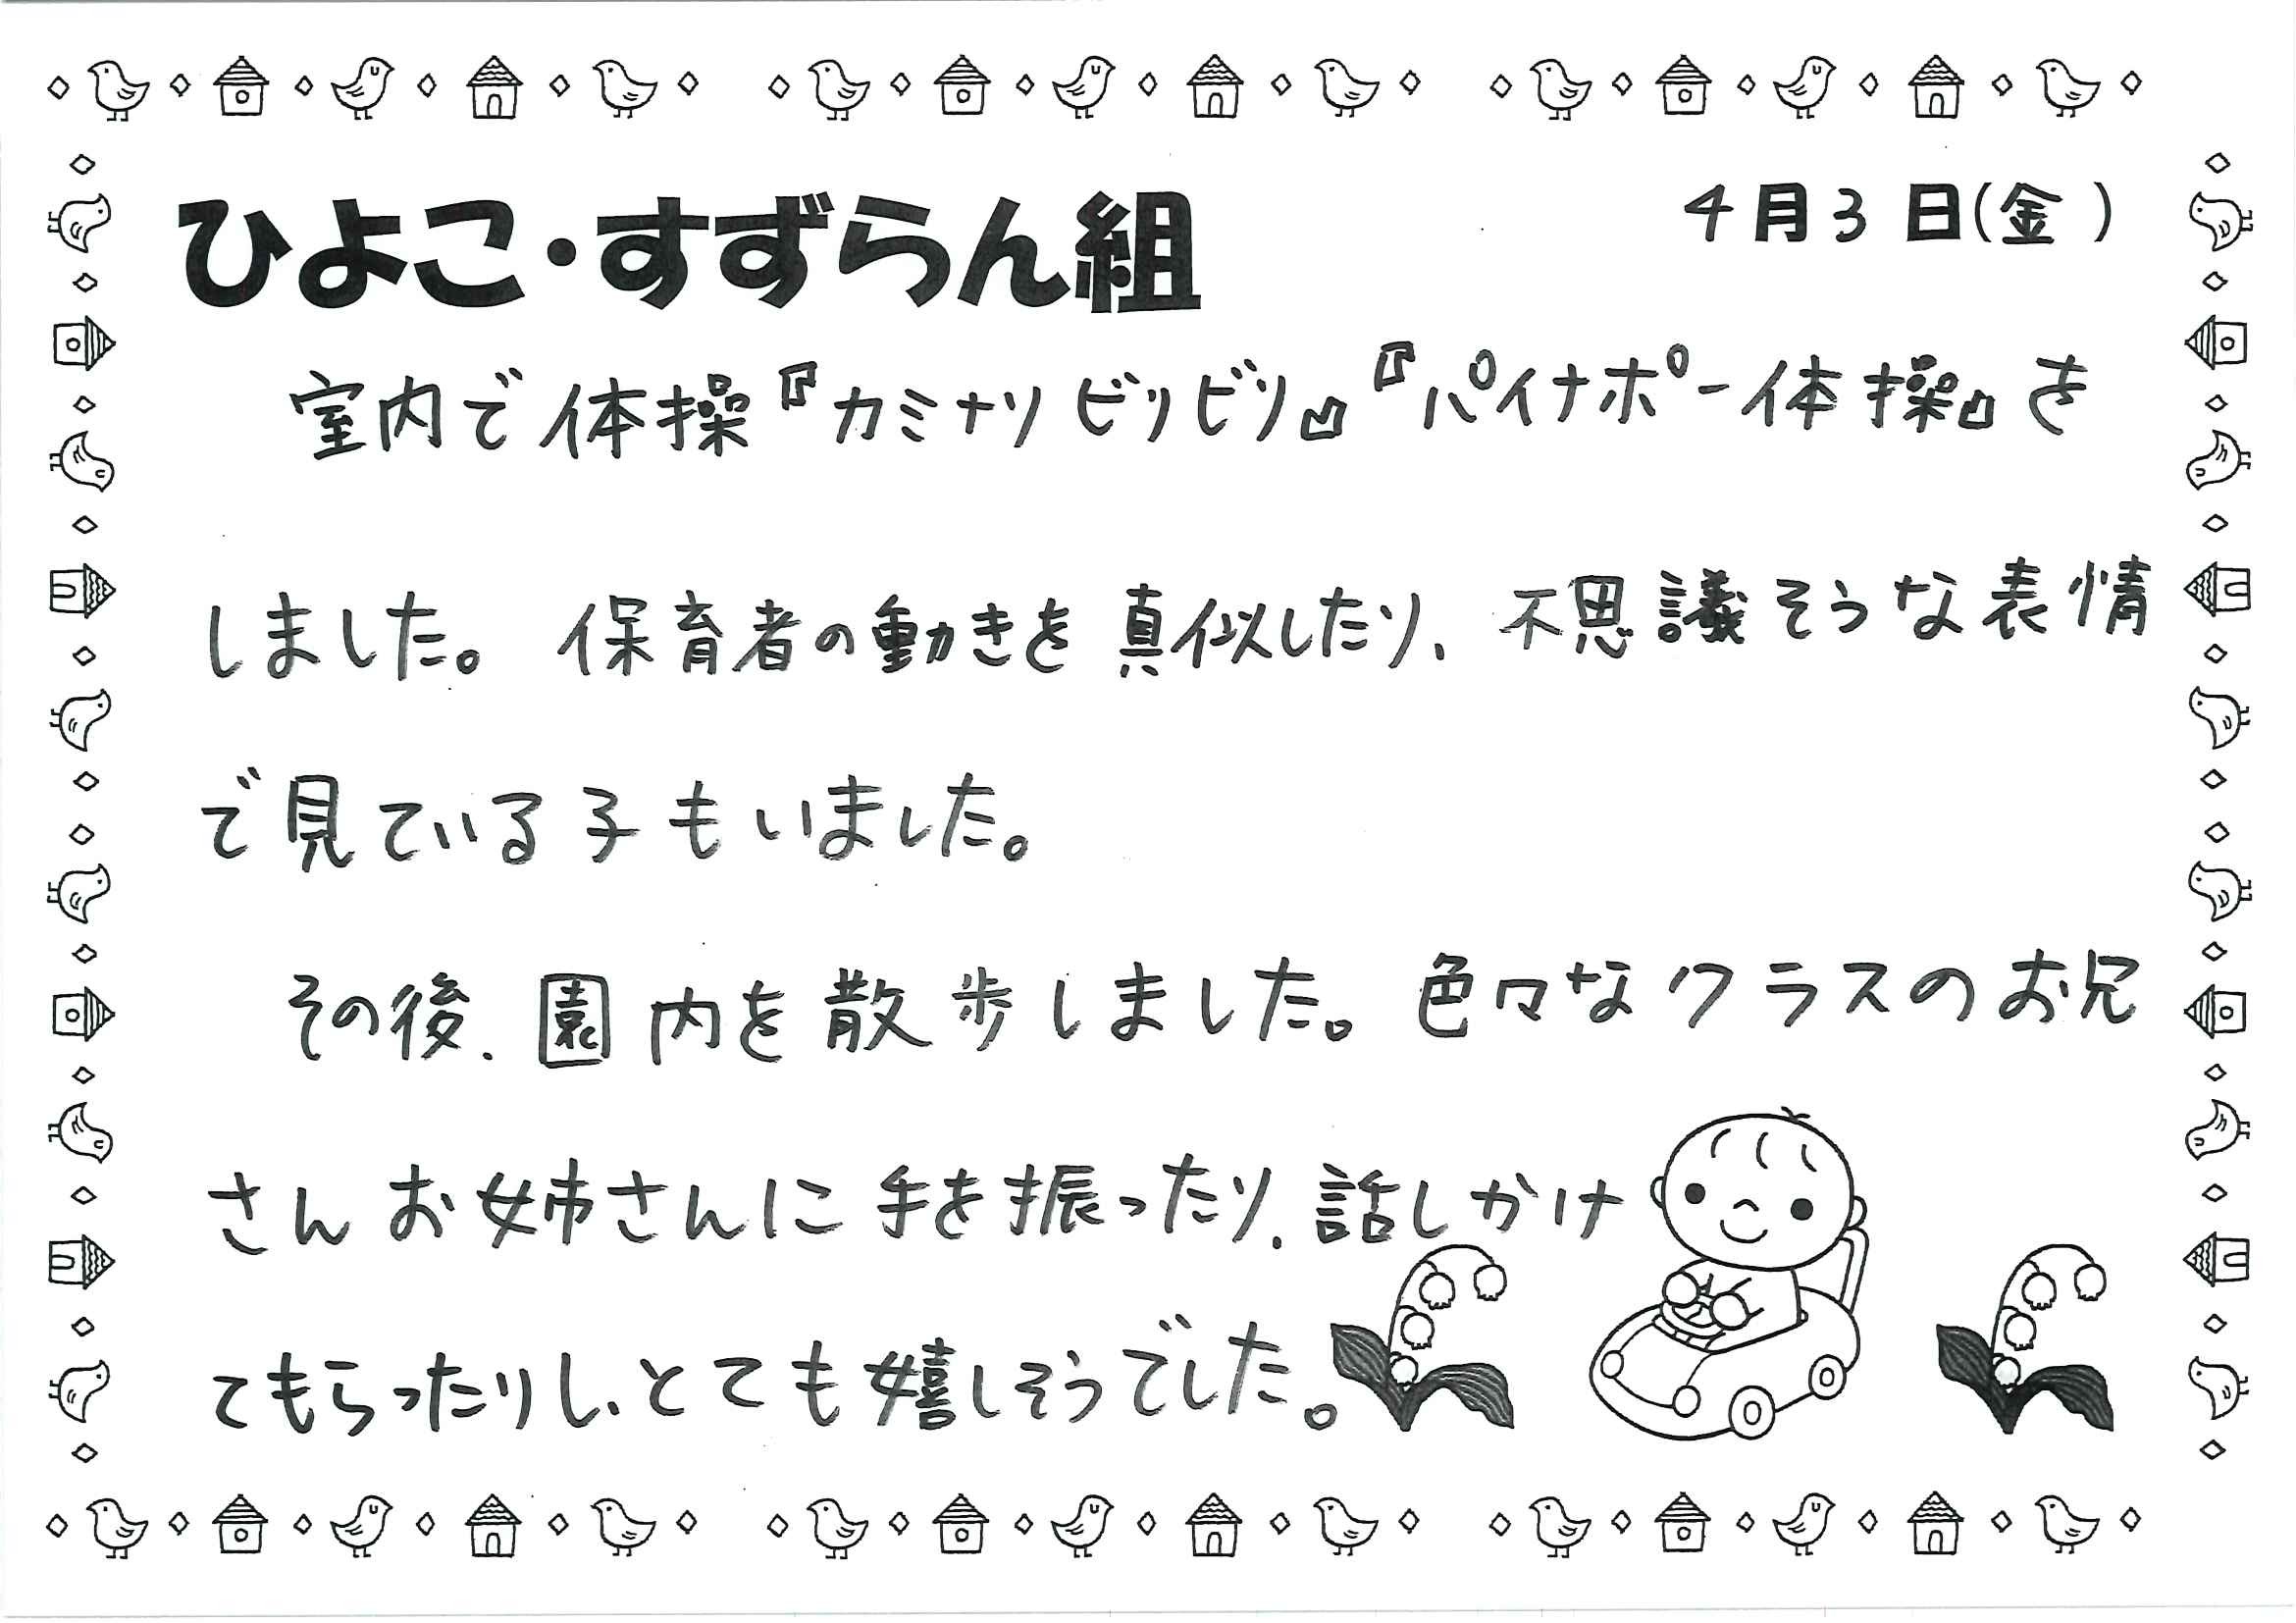 ひよこ・すずらん組
4月3日(金)
室内で体操『カミナリビリビリ』『パイナポー体操』を
しました。保育者の動きを真似したり、不思議そうな表情
で見ている子もいました。
その後、園内を散歩しました。色々なクラスのお兄
さんお姉さんに手を振ったり、話しかけ
てもらったりし、とても嬉しそうでした。